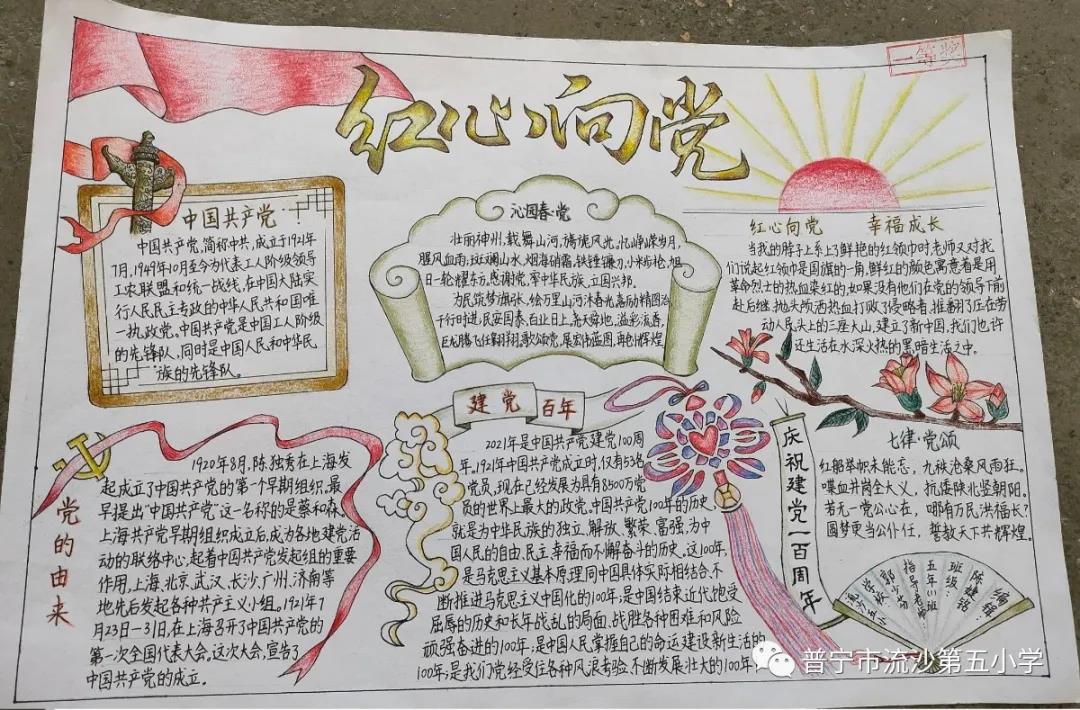 一等奖
红心向党
中国共产党:
中国共产党,简称中共,成立于1921年
7月,1949年10月至今为代表工人阶级领导
工农联盟和统一战线,在中国大陆实
行人民民主专政的中华人民共和国唯
一执政党。中国共产党是中国工人阶级
的先锋队,同时是中国人民和中华民
族的先锋队。
沁园春·党
壮丽神州,载舞山河,旖旎风光。忆峥嵘岁月,
腥风血雨,斑斓山水,烟海硝霜,铁锤镰刀,小米步枪,旭
日一轮耀东方。感谢党,率中华民族,立国兴邦。
为民筑梦旗张,绘万里山河沐春光,喜励精图治
千行时进,民安国泰,百业日上,尧天舜地,溢彩流香,
巨龙腾飞任翱翔,歌颂党,展宏伟蓝图,再创辉煌
红心向党 幸福成长
当我的脖子上系上了鲜艳的红领巾时,老师又对我
们说起红领巾是国旗的一角,鲜红的颜色寓意着是用
革命烈士的热血染红的,如果没有他们在党的领导下前
赴后继,抛头颅洒热血打败了侵略者,推翻了压在劳
动人民头上的三座大山,建立了新中国,我们也许
还生活在水深火热的黑暗生活之中。
党的由来
1920年8月,陈独秀在上海发
起成立了中国共产党的第一个早期组织,最
早提出“中国共产党”这一名称的是蔡和森、
上海共产党早期组织成立后,成为各地建党活
动的联络中心,起着中国共产党发起组的重要
作用,上海、北京、武汉、长沙、广州、济南等
地先后发起各种共产主义小组。1921年7
月23日一31日,在上海召开了中国共产党的
第一次全国代表大会,这次大会,宣告了
中国共产党的成立。
建党百年
2021年是中国共产党建党100周
年,1921年中国共产党成立时,仅有53名
党员,现在已经发展为具有8500万党
员的世界上最大的政党,中国共产党100年的历史,
就是为中华民族的独立、解放、繁荣、富强、为中
国人民的自由、民主幸福而不懈奋斗的历史,这100年,
是马克思主义基本原理同中国具体实际相结合、不
断推进马克思主义中国化的100年;是中国结束近代饱受
屈辱的历史和长年战乱的局面、战胜各种困难和风险
顽强奋进的100年,是中国人民掌握自己的命运建设新生活的
100年;是我们党经受住各种风浪考验、不断发展壮大的100年
庆祝建党一百周年
七律·党颂
红船举帜未能忘,九秩沧桑风雨狂。
喋血井岗全大义,抗倭陕北竖朝阳。
若无一党公心在,哪有万民洪福长?
圆梦更当公仆任,誓教天下共辉煌。
编辑:
陈婕铭
班级:
五年(1)班
指导老师:
郭少芬
学校:
流沙五小
普宁市流沙第五小学